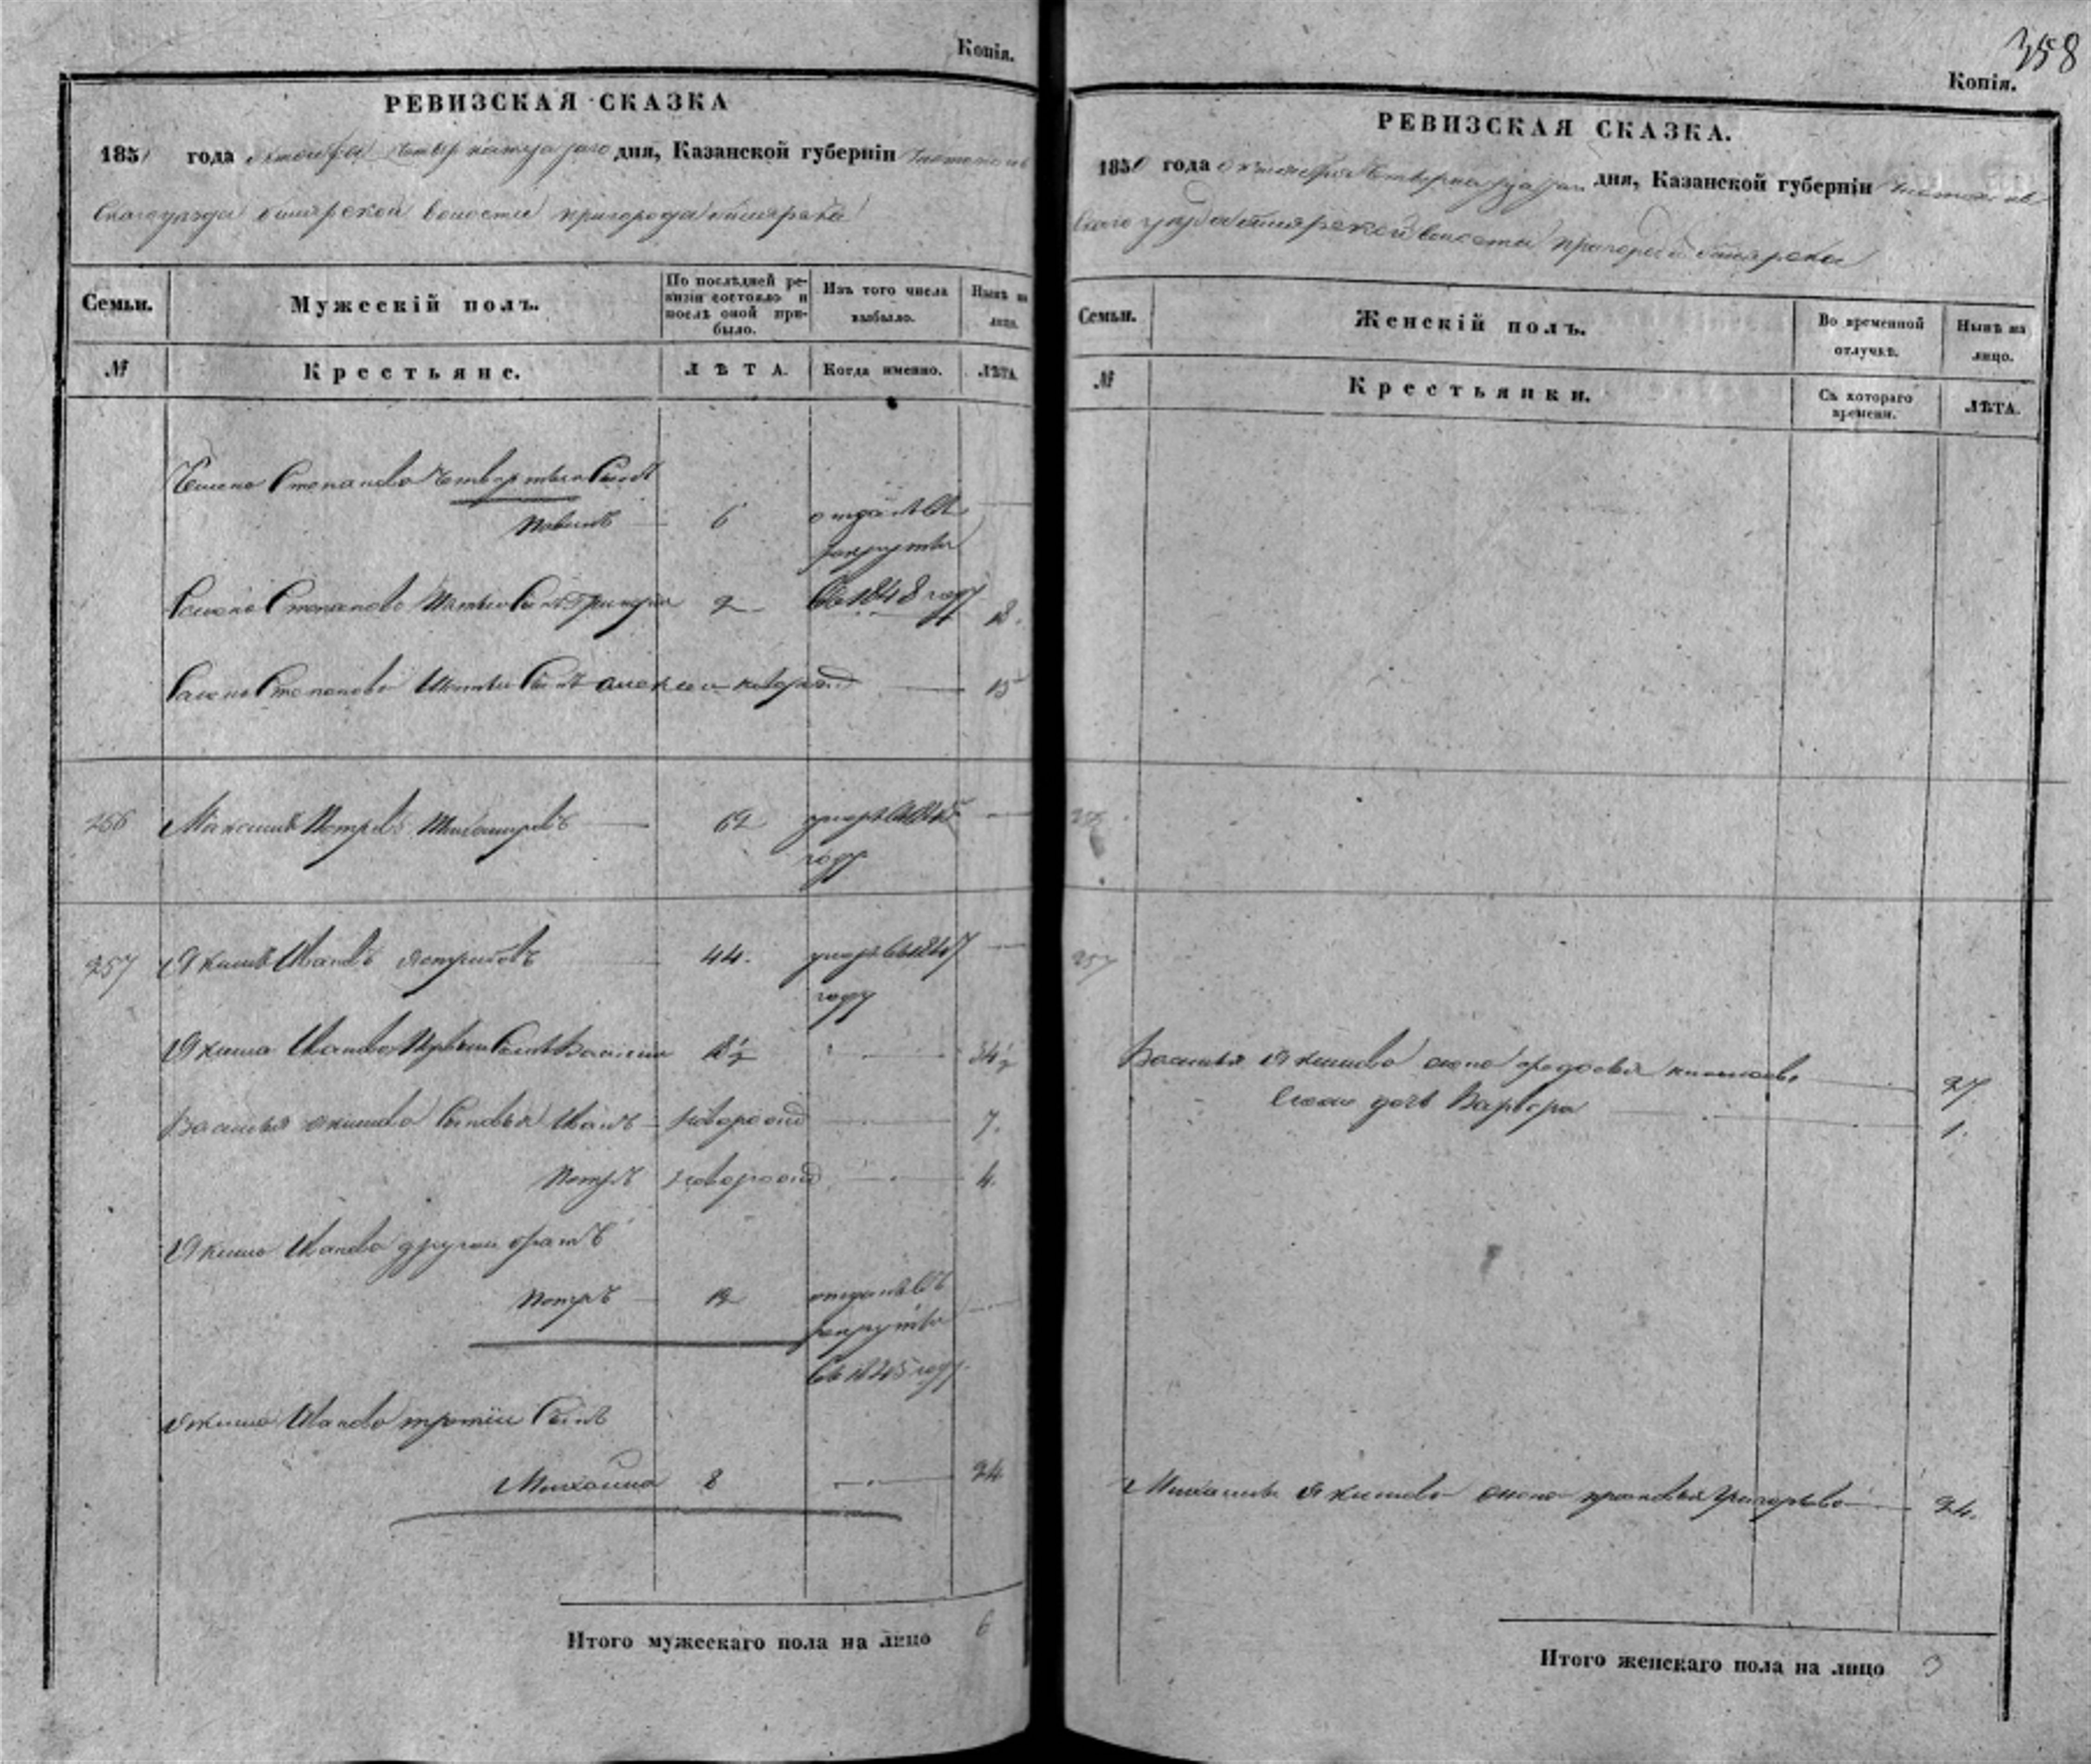 Копія.
РЕВИЗСКАЯ СКАЗКА
1850 года октября четырнадцатаго дня, Казанской губерніи Чистополь
скаго уезда билярской волости пригорода билярска
Семьи. Мужескій полъ. По послѣдней ре-
визіи состояло и
послѣ оной при-
было. Изъ того числа
выбыло. Нынѣ на
лицо.
№ Крестьяне. ЛѢТА. Когда именно. ЛѢТА.
Степанова четвертый Сынъ
6 отданъ въ
рекруты
Степанова Пятый Сынъ Григорій 2 въ 1848 году 18.
Степанова Шестый Сынъ алексей новорожд 15
256 Максимъ Петровъ 62 умеръ
году
257 Якимъ Ивановъ 44. умеръ въ 1847
году
Якима Иванова Первый Сынъ Василий 18½ 34½
Василья якимова Сыновья Иванъ новорожд 7.
Петръ новорожд 4.
Якима Иванова другой братъ
Петръ 12 отданъ въ
рекруты
въ 1845 году.
Якима Иванова третии Сынъ
Михаила 8 24
Итого мужескаго пола на лицо 6
358
Копія.
РЕВИЗСКАЯ СКАЗКА.
1850 года октября четырнадцатаго дня, Казанской губерніи Чистополь
скаго уезда билярской волости пригорода билярска
Семьи. Женскій полъ. Во временной
отлучкѣ. Нынѣ на
лицо.
№ Крестьянки. Съ котораго
времени. ЛѢТА.
256
257
Василья Якимова жена федосья 27.
дочь Варвара 1.
Михаила Якимова жена Григорьева 24.
Итого женскаго пола на лицо 3